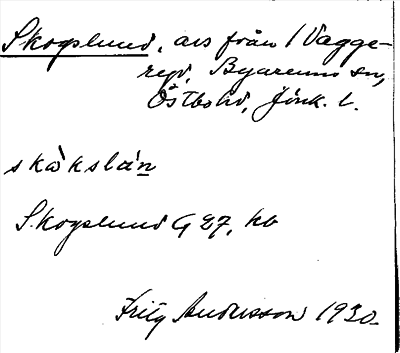 Skogslund, avs från 1 Vagge-
ryd, Byarums sn,
Östbo hd, Jönk. l.
skòkslán
Skogslund G E7, hb
Fritz Andersson 1930